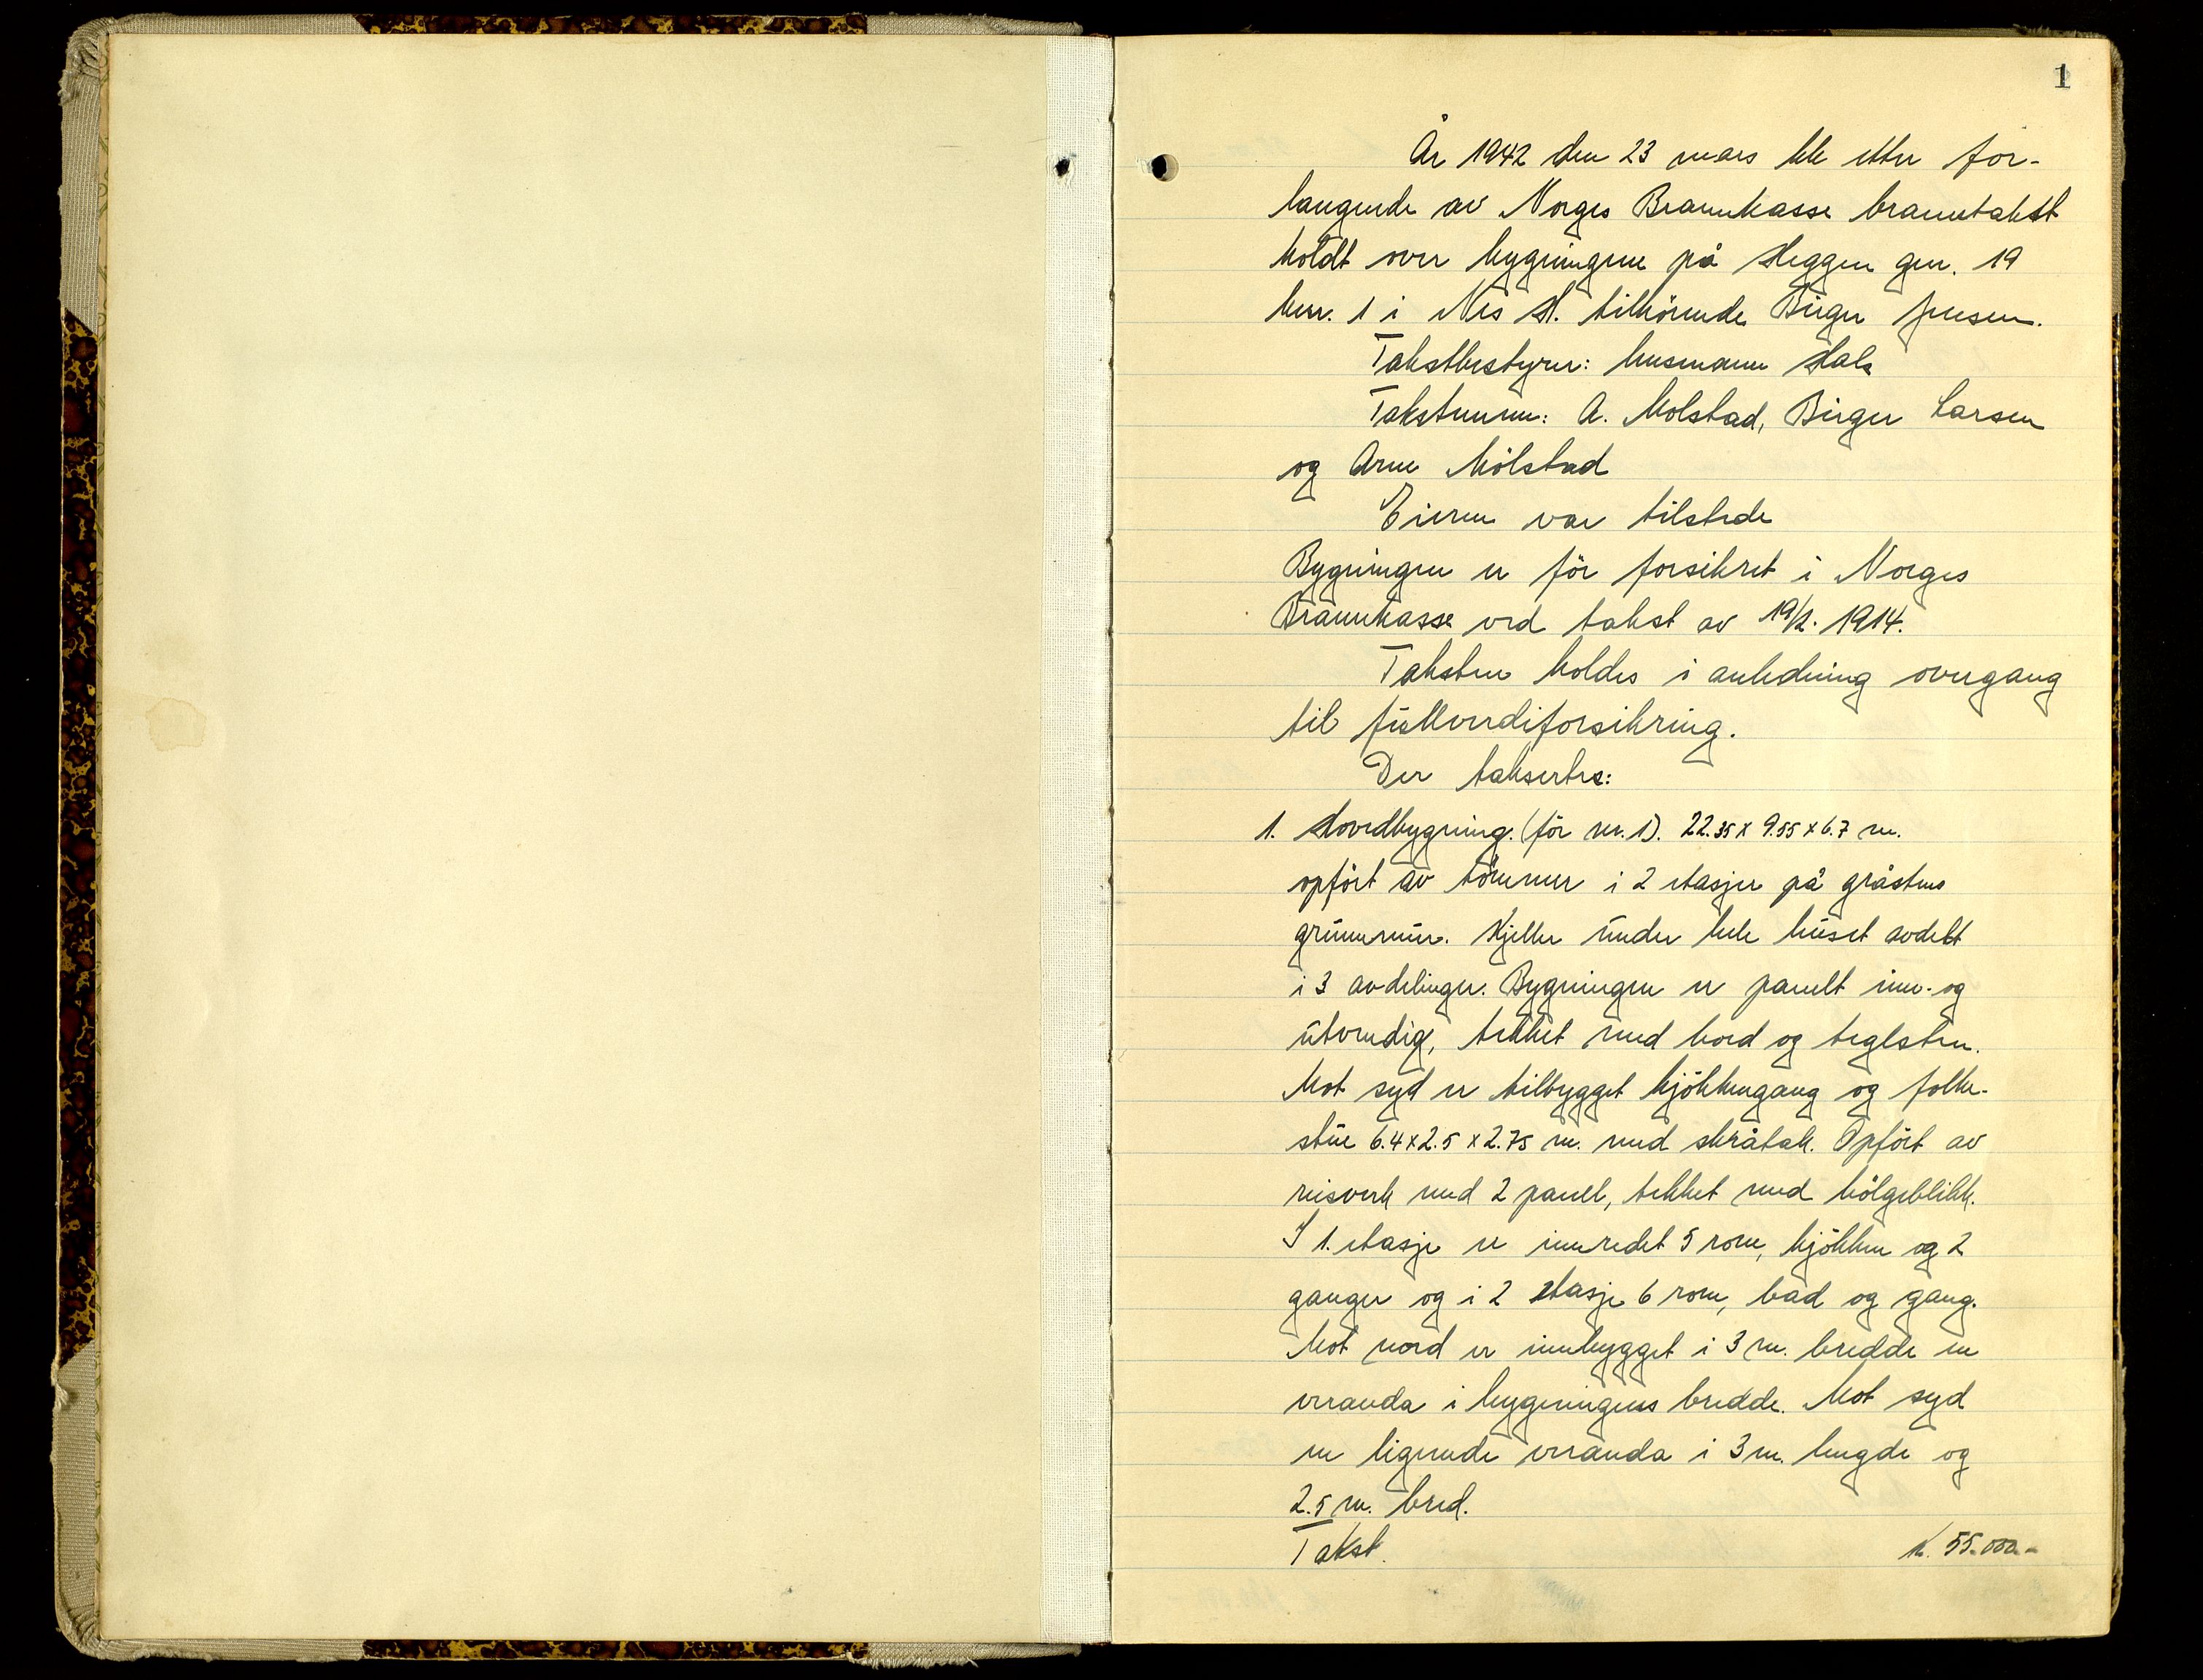 1
År 1942 den 23 mars ble etter for-
langende av Norges Brannkasse branntakst
holdt over bygningene på Heggen gnr. 19
bnr. 1 i Nes H. tilhörende Birger Jensen.
Takstbestyrer: lensmann Hals
Takstmenn: A. Molstad, Birger Larsen
og Arne Mölstad
Eieren var tilstede
Bygningen er för forsikret i Norges
Brannkasse ved takst av 19/2. 1914.
Taksten holdes i anledning overgang
til fullverdiforsikring.
Der takseres:
1. Hovedbygning. (för nr. 1). 22.35 x 9.55 x 6.7 m.
opfört av tömmer i 2 etasjer på gråstens
grunnmur. Kjeller under hele huset avdelt
i 3 avdelinger. Bygningen er panelt inn- og
utvendig, tekket med bord og teglsten.
Mot syd er tilbygget kjökkengang og folke-
stue 6.4 x 2.5 x 2.75 m. med skråtak. Opfört av
reisverk med 2 panel, tekket med bölgeblikk.
I 1. etasje er innredet 5 rom, kjökken og 2
ganger og i 2 etasje 6 rom, bad og gang.
Mot nord er innbygget i 3 m. bredde en
veranda i bygningens bredde. Mot syd
en lignende veranda i 3 m. lengde og
2.5 m. bred.
Takst. k. 55.000.-